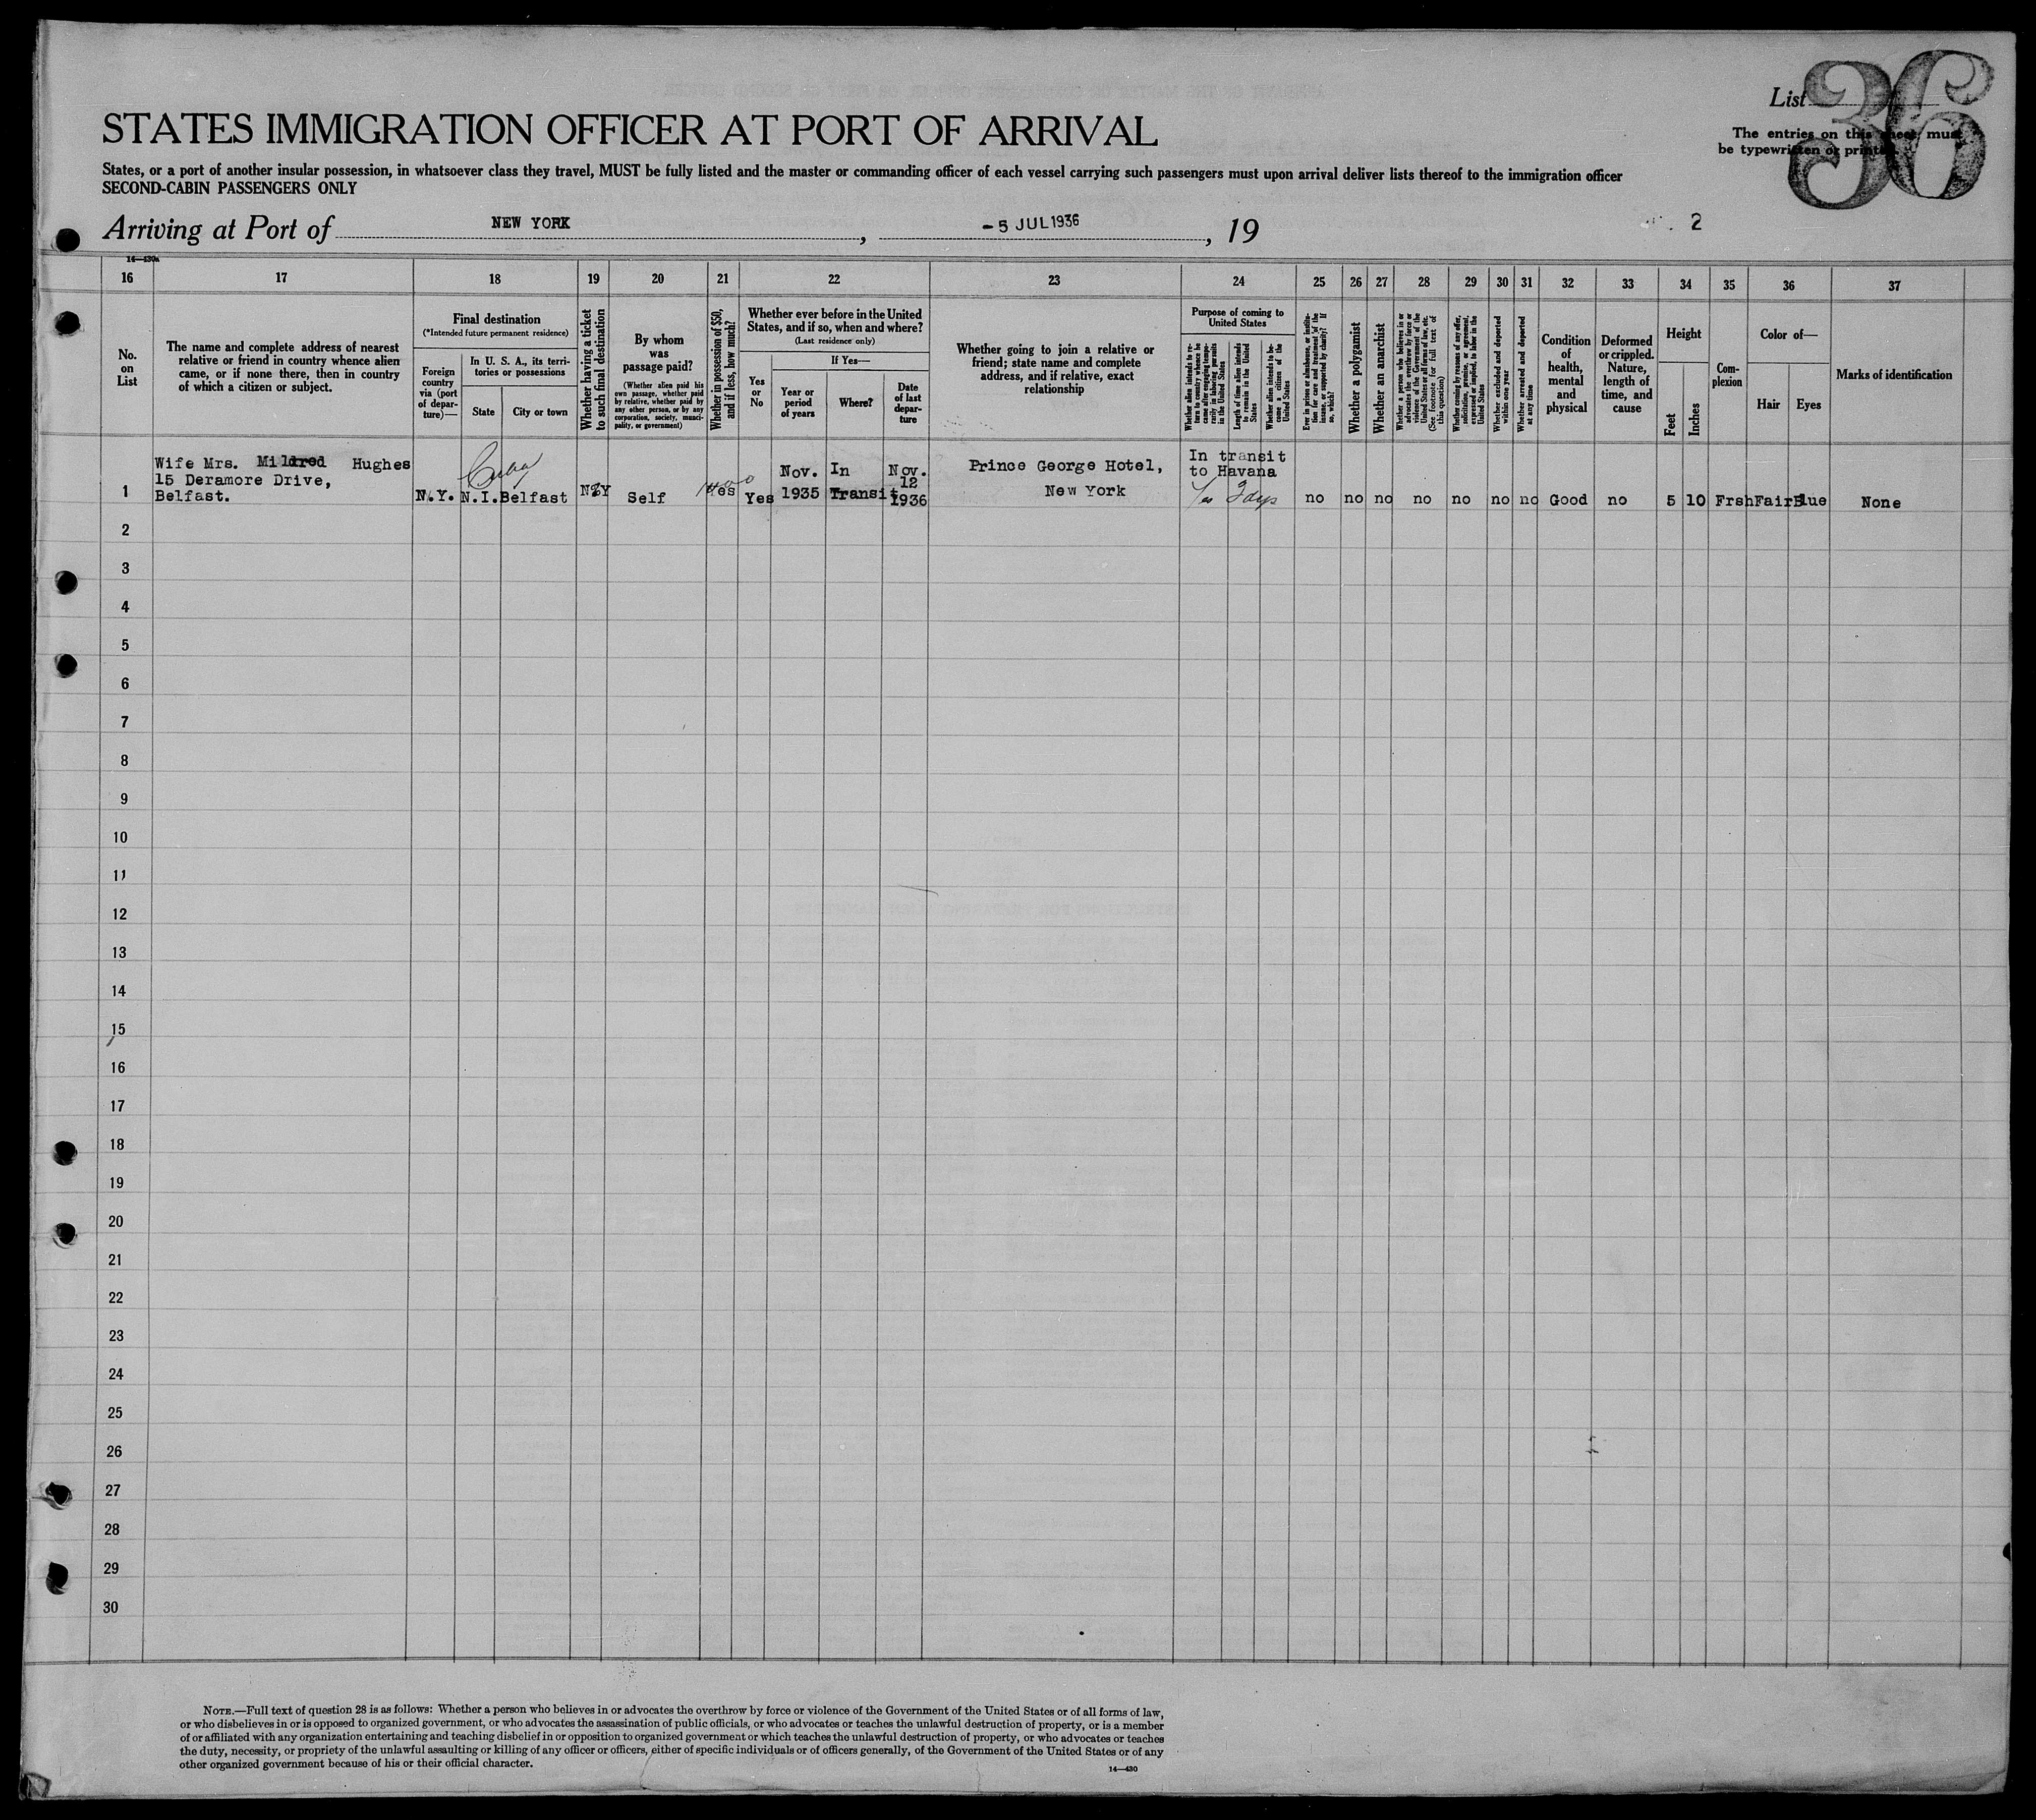 List
36
The entries on this sheet must
be typewritten or printed.
STATES IMMIGRATION OFFICER AT PORT OF ARRIVAL
States, or a port of another insular possession, in whatsoever class they travel, MUST be fully listed and the master or commanding officer of each vessel carrying such passengers must upon arrival deliver lists thereof to the immigration officer
SECOND-CABIN PASSENGERS ONLY
Arriving at Port of NEW YORK, -5 JUL 1936, 19
2
14—430a
16 17 18 19 20 21 22 23 24 25 26 27 28 29 30 31 32 33 34 35 36 37
No. on List
The name and complete address of nearest
relative or friend in country whence alien
came, or if none there, then in country
of which a citizen or subject.
Final destination
(*Intended future permanent residence)
Foreign
country
via (port
of depar-
ture)—
In U. S. A., its terri-
tories or possessions
State
City or town
Whether having a ticket
to such final destination
By whom
was
passage paid?
(Whether alien paid his
own passage, whether paid
by relative, whether paid by
any other person, or by any
corporation, society, munici-
pality, or government)
Whether in possession of $50,
and if less, how much?
Whether ever before in the United
States, and if so, when and where?
(Last residence only)
Yes
or
No
If Yes—
Year or
period
of years
Where?
Date
of last
depar-
ture
Whether going to join a relative or
friend; state name and complete
address, and if relative, exact
relationship
Purpose of coming to
United States
Whether alien intends to re-
turn to country whence he
came after engaging tempo-
rarily in laboring pursuits
in the United States
Length of time alien intends
to remain in the United
States
Whether alien intends to be-
come a citizen of the
United States
Ever in prison or almshouse, or institu-
tion for care and treatment of the
insane, or supported by charity? If
so, which?
Whether a polygamist
Whether an anarchist
Whether a person who believes in or
advocates the overthrow by force or
violence of the Government of the
United States or all forms of law, etc.
(See footnote for full text of
this question)
Whether coming by reason of any offer,
solicitation, promise, or agreement,
expressed or implied, to labor in the
United States
Whether excluded and deported
within one year
Whether arrested and deported
at any time
Condition
of
health,
mental
and
physical
Deformed
or crippled.
Nature,
length of
time, and
cause
Height
Feet
Inches
Com-
plexion
Color of—
Hair
Eyes
Marks of identification
Wife Mrs. Mildred Hughes
15 Deramore Drive,
Belfast.
Cuba
1 N.Y. N.I. Belfast Self Yes Yes
Nov.
1935
In
Transit
Nov.
12
1936
Prince George Hotel,
New York
In transit
to Havana
2 days
no no no no no no no Good no 5 10 Frsh Fair Blue None
2
3
4
5
6
7
8
9
10
11
12
13
14
15
16
17
18
19
20
21
22
23
24
25
26
27
28
29
30
NOTE.—Full text of question 28 is as follows: Whether a person who believes in or advocates the overthrow by force or violence of the Government of the United States or of all forms of law,
or who disbelieves in or is opposed to organized government, or who advocates the assassination of public officials, or who advocates or teaches the unlawful destruction of property, or is a member
of or affiliated with any organization entertaining and teaching disbelief in or opposition to organized government or which teaches the unlawful destruction of property, or who advocates or teaches
the duty, necessity, or propriety of the unlawful assaulting or killing of any officer or officers, either of specific individuals or of officers generally, of the Government of the United States or of any
other organized government because of his or their official character.
14—430